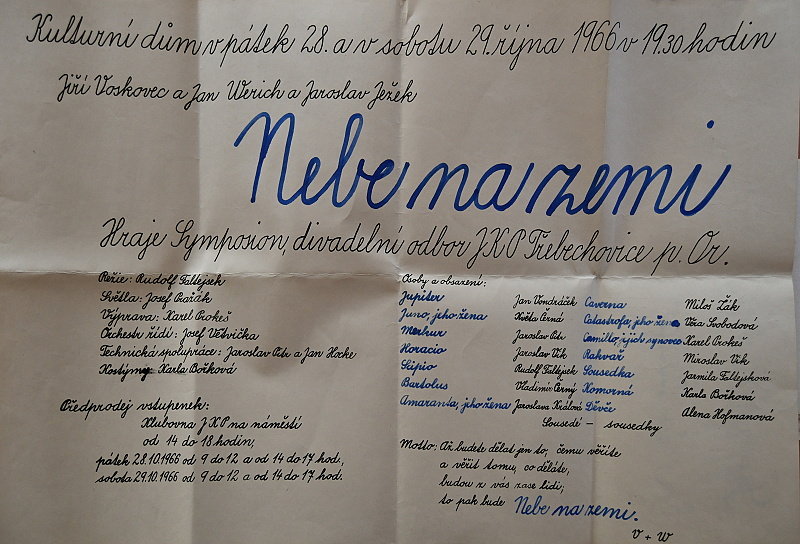 Kulturní dům v pátek 28. a v sobotu 29. října 1966 v 19.30 hodin
Jiří Voskovec a Jan Werich a Jaroslav Ježek
Nebe na zemi
Hraje Symposion, divadelní odbor JKP Třebechovice p. Or.
Režie: Rudolf Faltejsek
Světla: Josef
Výprava: Karel Prokeš
Orchestr řídí: Josef Větvička
Technická spolupráce: Jaroslav Petr a Jan Horke
Kostýmy Karla Bořková
Předprodej vstupenek:
Klubovna JKP na náměstí
od 14 do 18 hodin,
pátek 28.10.1966 od 9 do 12 a od 14 do 17 hod.,
sobota 29.10.1966 od 9 do 12 a od 14 do 17 hod.
Osoby a obsazení:
Jupiter Jan Vondráček Caverna Miloš Žák
Juno, jeho žena Květa Černá Catastrofa, jeho žena Věra Svobodová
Merkur Jaroslav Petr Camillo, jejich synovec Karel Prokeš
Horacio Jaroslav Vik Rakvář Miroslav Vik
Scipio Rudolf Faltejsek Sousedka Jarmila Faltejsková
Bartolus Vladimír Černý Komorná Karla Bořková
Amaranta, jeho žena Jaroslava Králová Děvče Alena Hofmanová
Sousedé - sousedky
Motto: Až budete dělat jen to, čemu věříte
a věřit tomu, co děláte,
budou z vás zase lidi;
to pak bude Nebe na zemi.
V + W